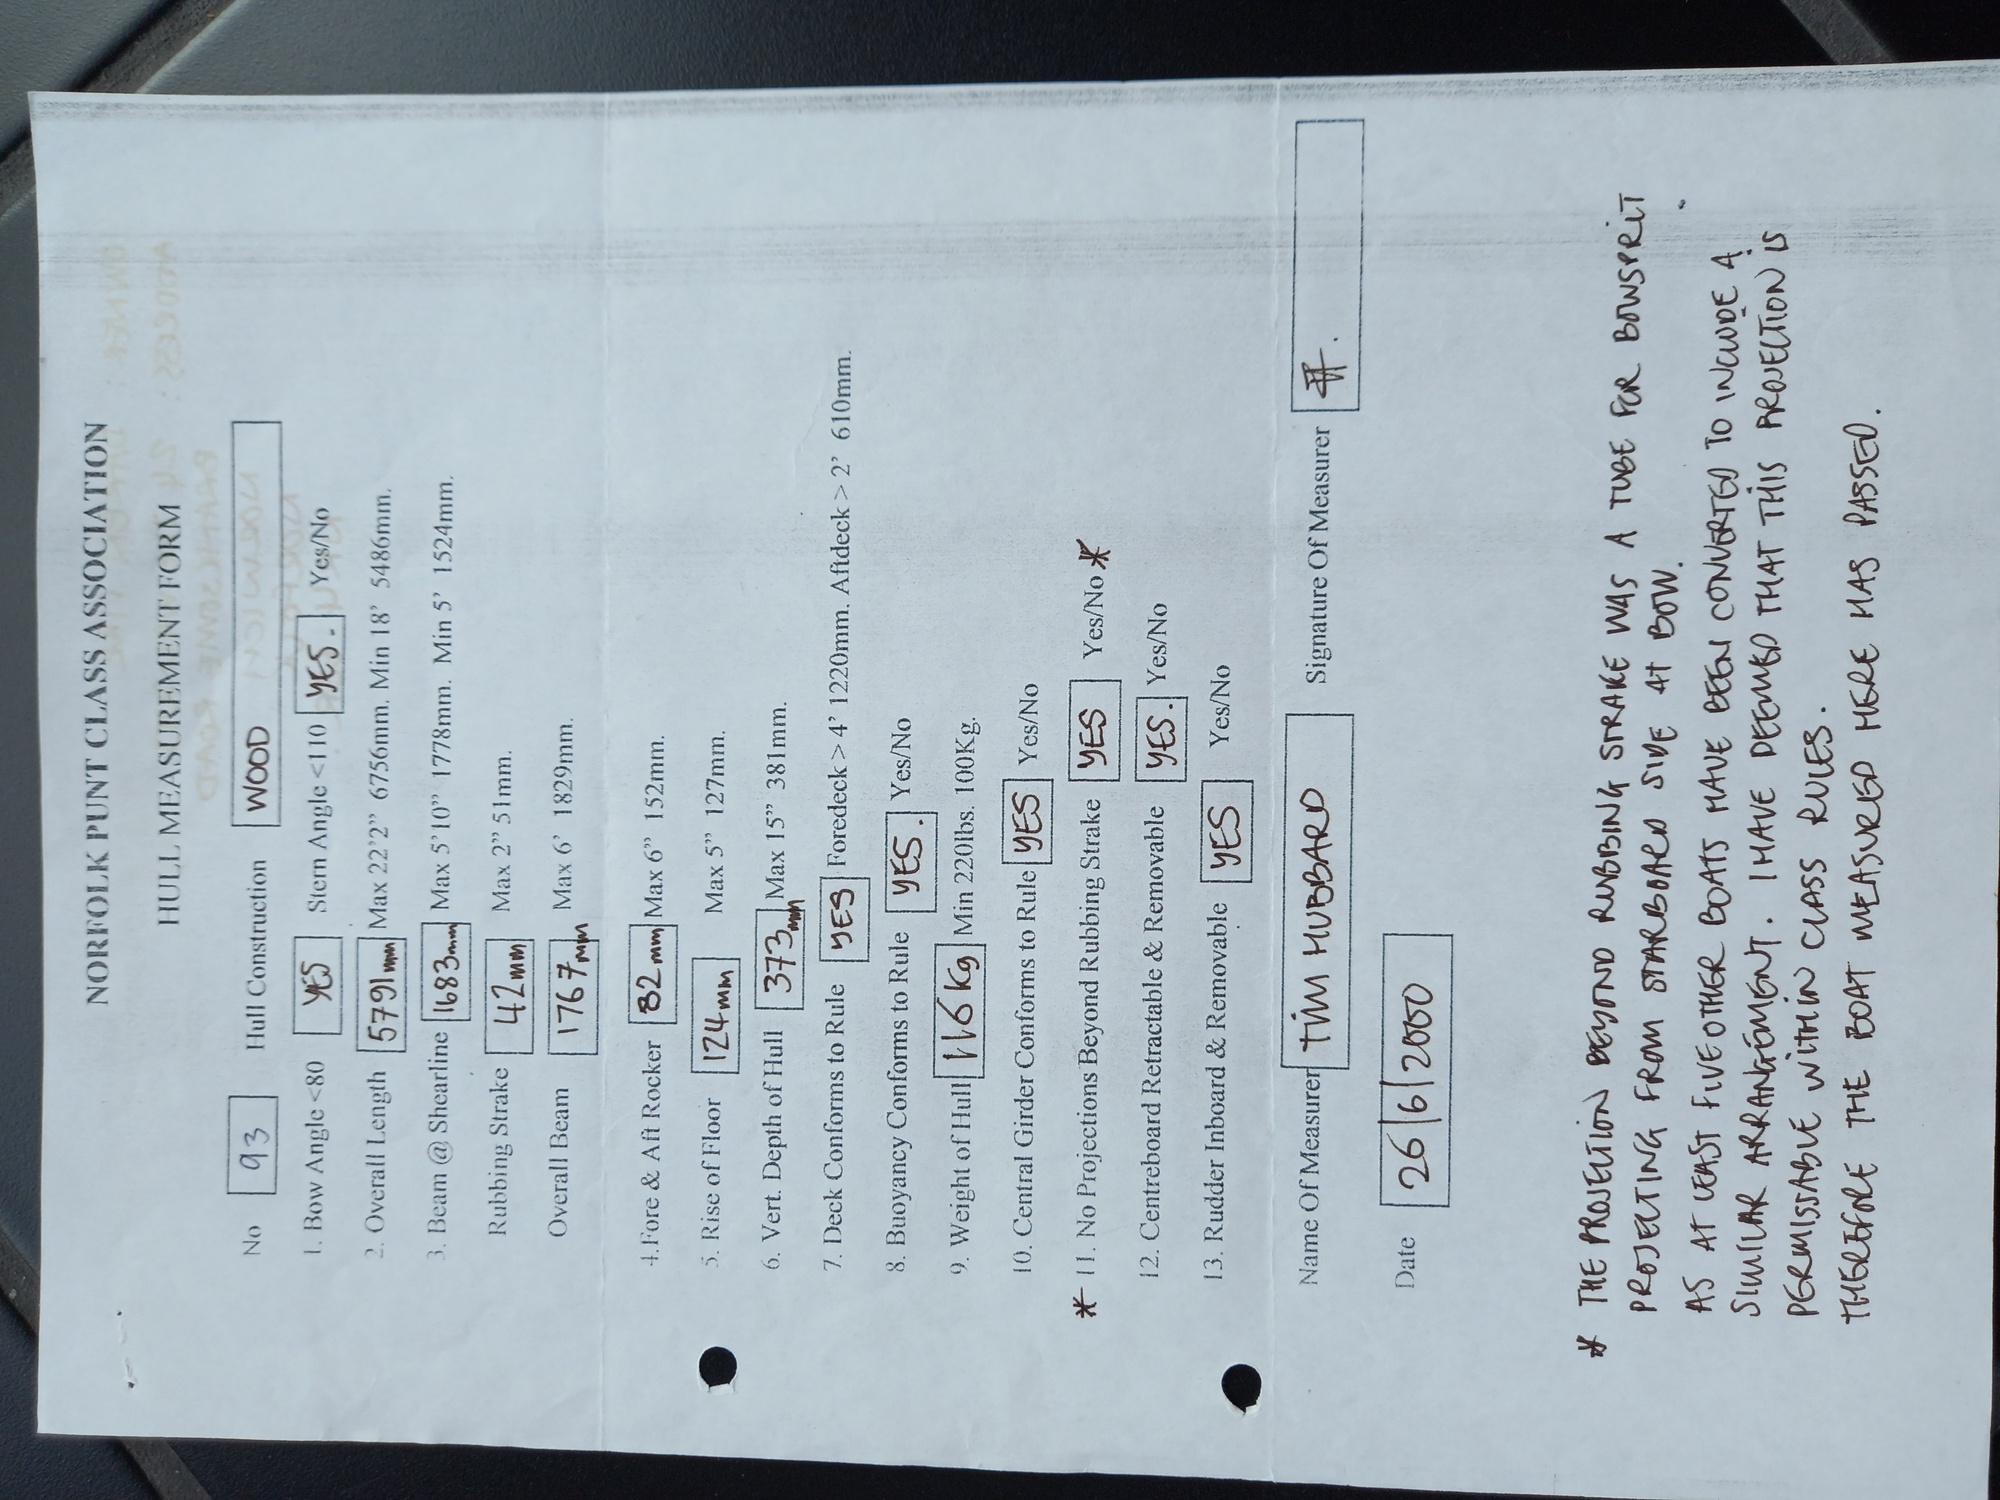 NORFOLK PUNT CLASS ASSOCIATION
HULL MEASUREMENT FORM
No 93 Hull Construction WOOD
1. Bow Angle <80 YES Stern Angle <110 YES. Yes/No
2. Overall Length 5791mm Max 22'2" 6756mm. Min 18' 5486mm.
3. Beam @ Shearline 1683mm Max 5'10" 1778mm. Min 5' 1524mm.
Rubbing Strake 42mm Max 2" 51mm.
Overall Beam 1767mm Max 6' 1829mm.
4.Fore & Aft Rocker 82mm Max 6" 152mm.
5. Rise of Floor 124mm Max 5" 127mm.
6. Vert. Depth of Hull 373mm Max 15" 381mm.
7. Deck Conforms to Rule YES Foredeck > 4' 1220mm. Aftdeck > 2' 610mm.
8. Buoyancy Conforms to Rule YES. Yes/No
9. Weight of Hull 116Kg Min 220lbs. 100Kg.
10. Central Girder Conforms to Rule YES Yes/No
* 11. No Projections Beyond Rubbing Strake YES Yes/No *
12. Centreboard Retractable & Removable YES. Yes/No
13. Rudder Inboard & Removable YES Yes/No
Name Of Measurer TIM HUBBARD Signature Of Measurer
Date 26/6/2000
* THE PROJECTION BEYOND RUBBING STRAKE WAS A TUBE FOR BOWSPRIT
PROJECTING FROM STARBOARD SIDE AT BOW.
AS AT LEAST FIVE OTHER BOATS HAVE BEEN CONVERTED TO INCLUDE A
SIMILAR ARRANGEMENT. I HAVE DEEMED THAT THIS PROJECTION IS
PERMISSABLE WITHIN CLASS RULES.
THEREFORE THE BOAT MEASURED HERE HAS PASSED.